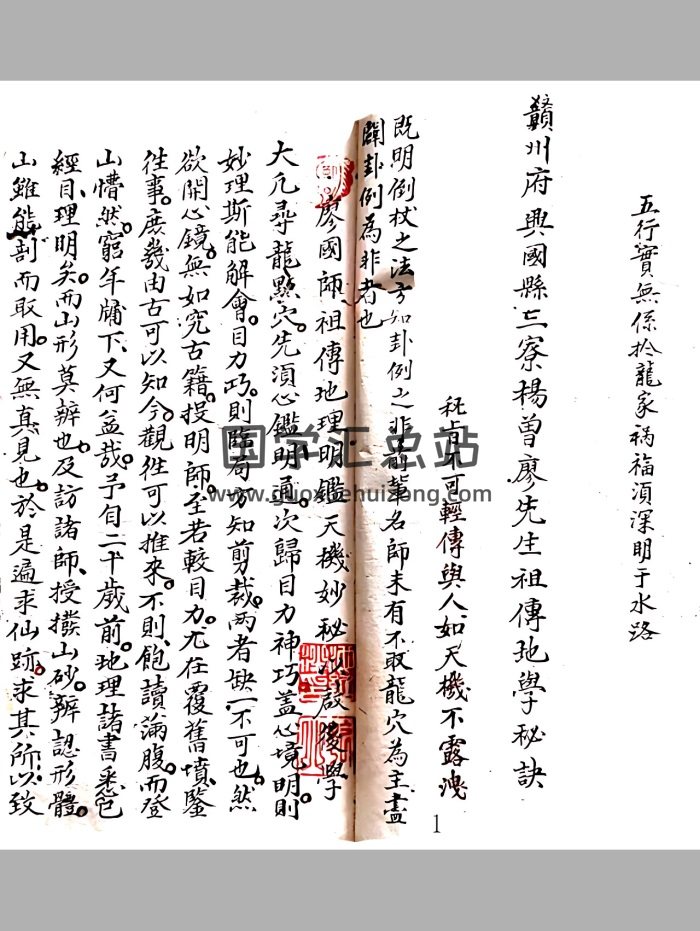 五行實無係扵龍家禍福須深明于水路
贛州府興國縣三寮楊曾廖先生祖傳地學秘訣
秘旨不可輕傳與人如天機不露洩
既明倒杖之法方知卦例之非前輩名師未有不取龍穴為主盡
闢卦例為非者也
廖國師祖傳地理明鑑天機妙秘以啟後學
大凢尋龍點穴。先須心鑑明通。次歸目力神巧。盖心境明。則
妙理斯能解會。目力巧。則臨局方知剪裁。兩者缺一不可也。然
欲開心鏡。無如究古籍。投明師。至若較目力。尢在覆舊墳。鑒
徃事。庶幾由古可以知今。觀徃可以推來。不則、飽讀滿腹。而登
山懵然。窮年牖下、又何益哉。予自二十歲前。地理諸書、悉包
經目。理明矣。而山形莫辨也。及訪諸師、授撥山砂。辨認形體。
山雖能剖而取用。又無真見也。於是遍求仙跡。求其所以致
国学汇总站
www.guoxuehuizong.com
1